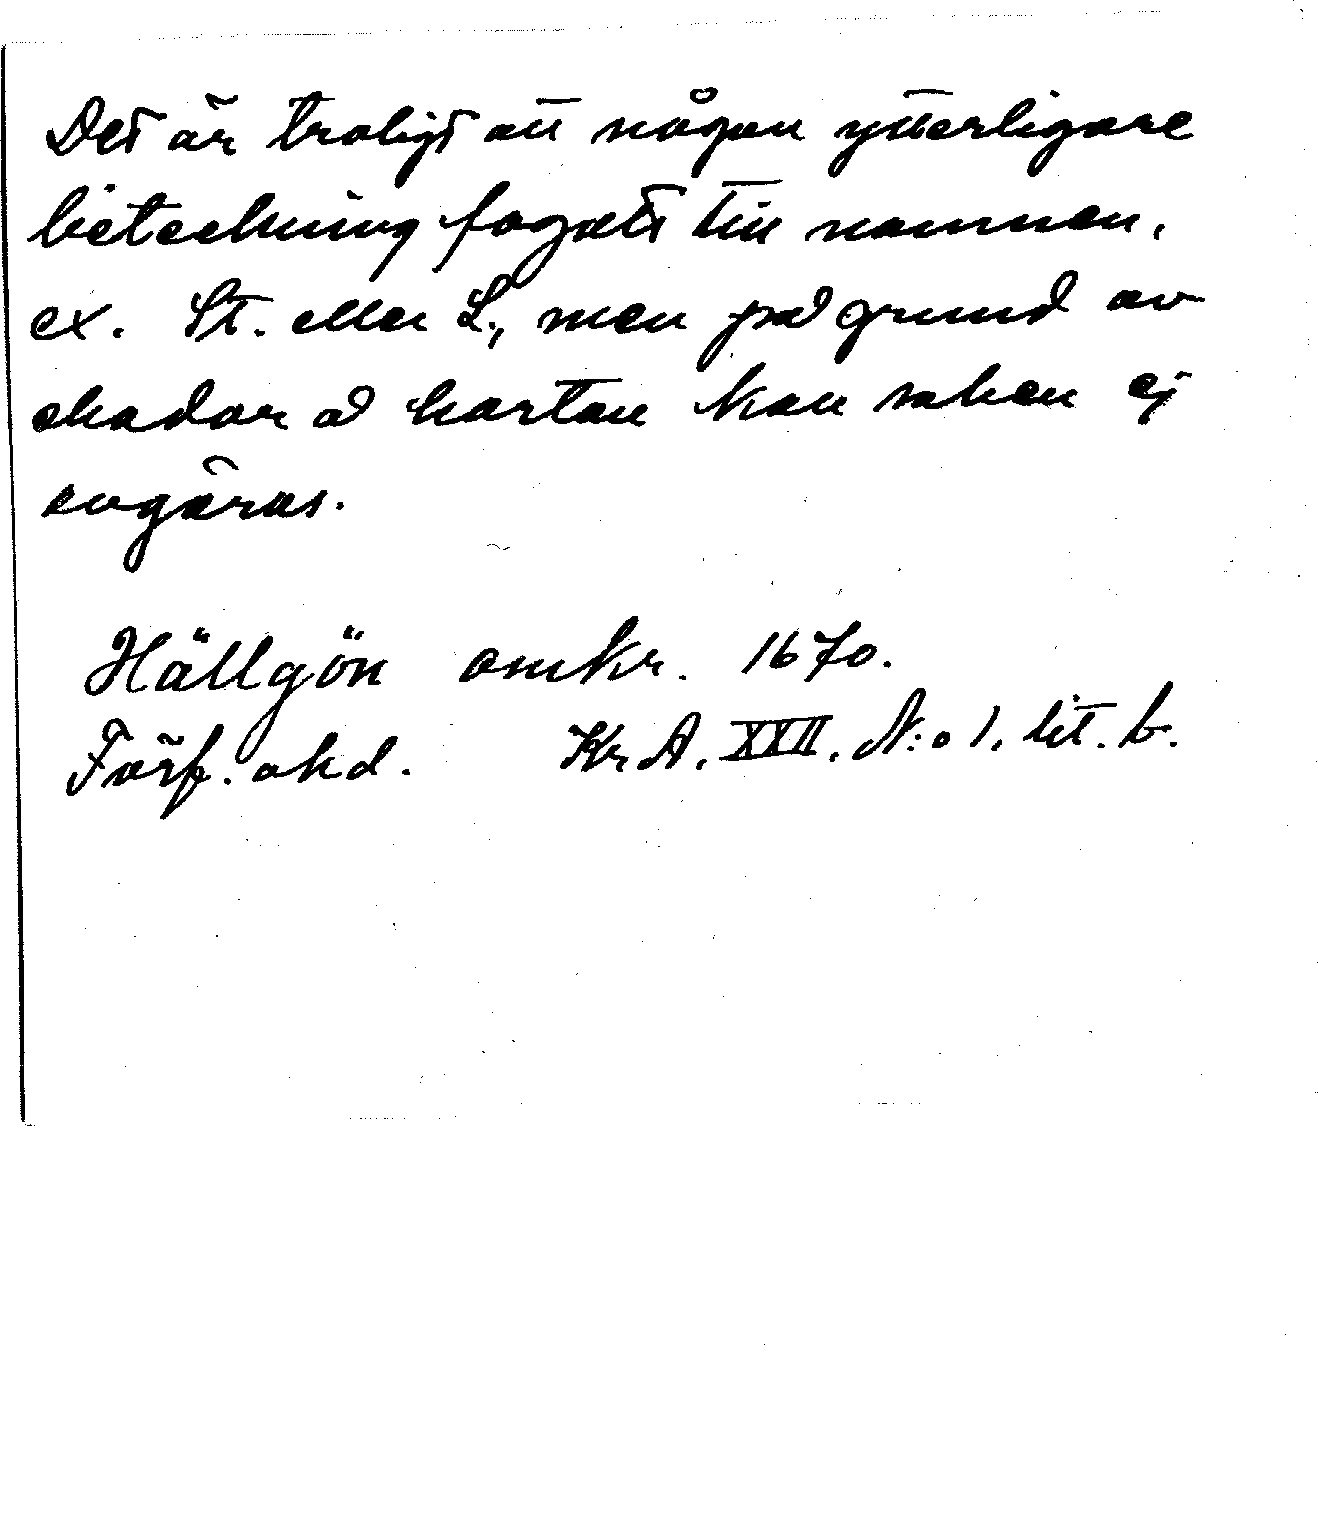 Det är troligt att någon ytterligare
beteckning fogats till namnen,
ex. St. eller L., men på grund av
skador å kartan kan saken ej
avgöras.
Hällgön omkr. 1670.
Förf. okd. Kr A. XXII. N:o 1. lit. b.